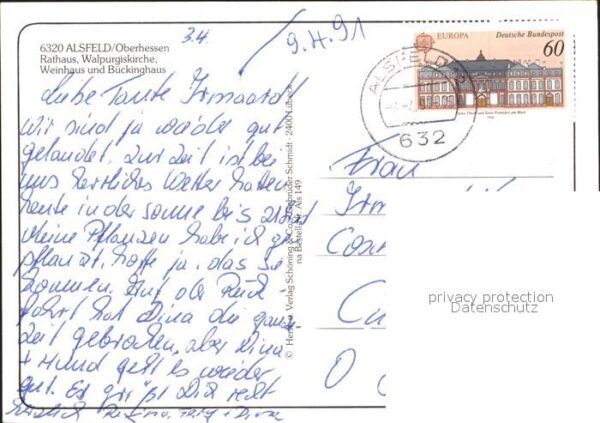 6320 ALSFELD/Oberhessen
Rathaus, Walpurgiskirche,
Weinhaus und Bückinghaus
3.4.
9.4.91
EUROPA Deutsche Bundespost
60
ALSFELD
632
Liebe Tante Irmgard
Wir sind ja wieder gut
gelandet. Zur Zeit ist bei
uns herrliches Wetter hatten
heute in der Sonne bis
Meine Pflanzen habe ich ge-
pflanzt, hoffe ja, das sie
kommen. Auf der Rück
fahrt hat Dina die ganze
Zeit gebrochen, aber Dina
+ Hund geht es wieder
gut. Es grüßt Dich recht
herzlich
© Verlag Schöning & Co + Gebrüder Schmidt · 2400 Lübeck
Bestell-Nr. Als 149
Frau
privacy protection
Datenschutz